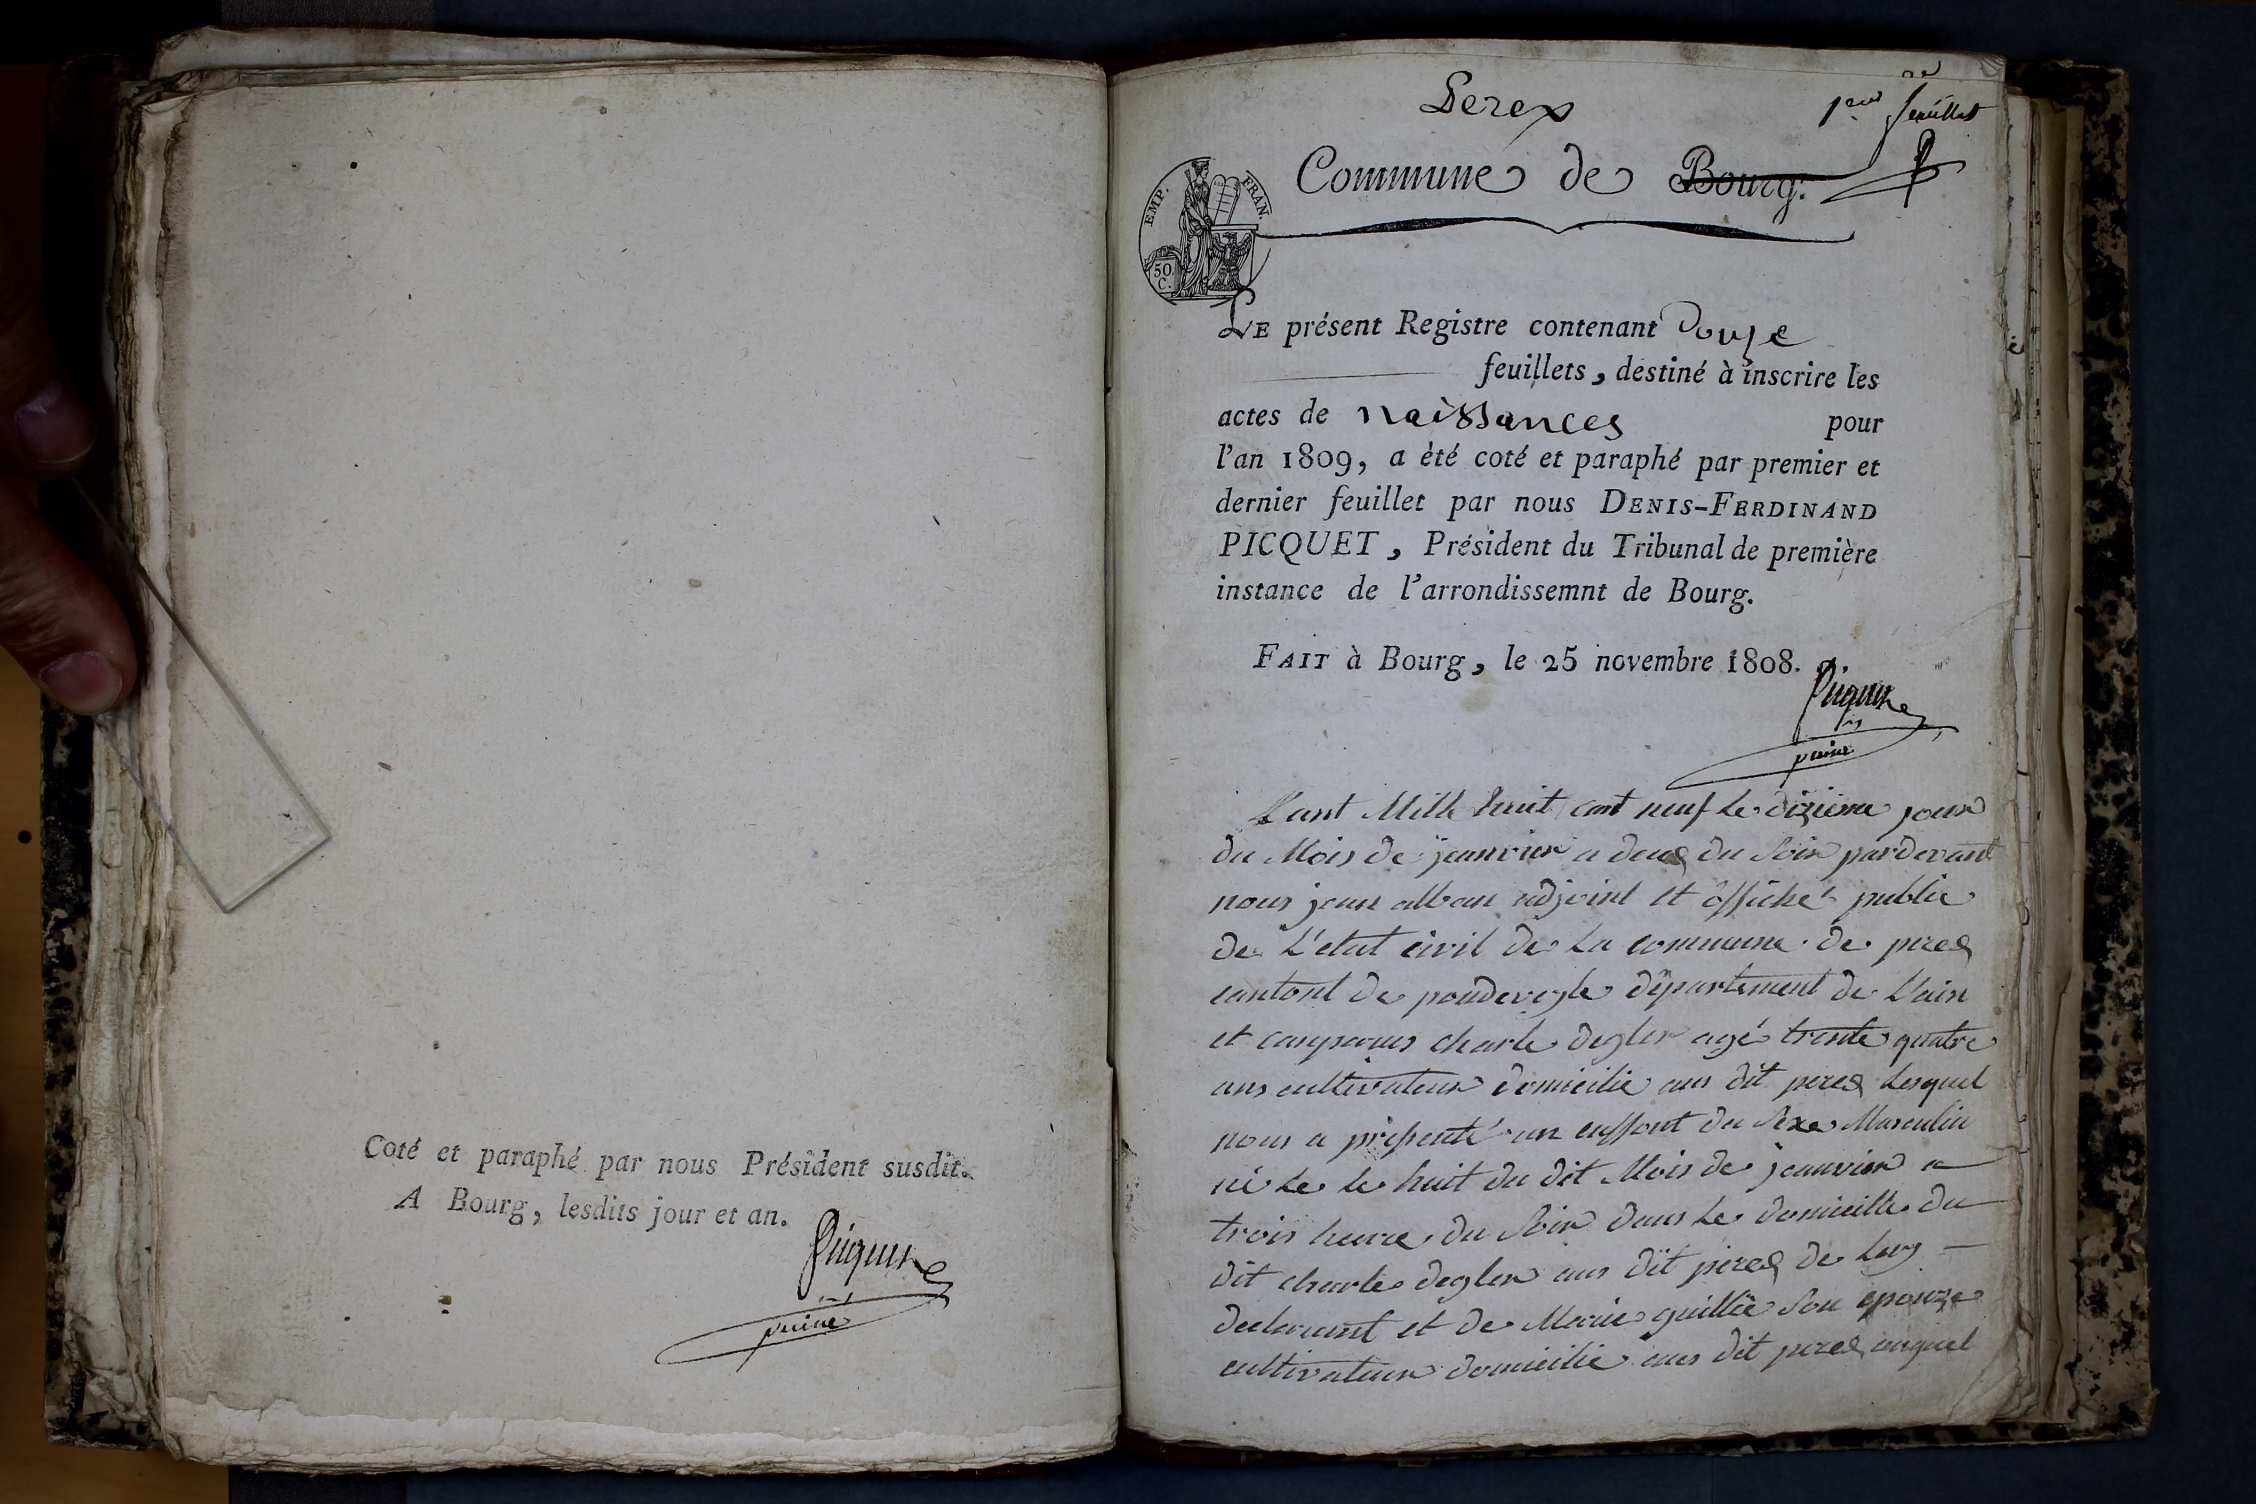 Coté et paraphé par nous Président susdit.
A Bourg, lesdits jour et an.
Picquet
Perex
1er feuillet
Commune de Bourg.
EMP. FRAN.
50
C.
LE présent Registre contenant Douze
feuillets, destiné à inscrire les
actes de naissances pour
l'an 1809, a èté coté et paraphé par premier et
dernier feuillet par nous DENIS-FERDINAND
PICQUET, Président du Tribunal de première
instance de l'arrondissemnt de Bourg.
FAIT à Bourg, le 25 novembre 1808.
Picquet
L'ant Mille huit cent neuf Le dizieme jour
du Mois de janvier a deus du Soir pardevant
nous jean alban adjoint et officié public
de L'etat civil de La commune de peres
cantont de pondevesle département de L'ain
et comparus charle degler agé trente quatre
ans cultivateur domicilie aus dit peres Lesquel
nous a présenté un enffant du Sexe Masculin
né Le le huit du dit Mois de janvier a
trois heure du Soir dans Le domicille du
dit charle degler aus dit peres de Luy
declarant et de Marie guillie Son epouze
cultivateur domicilie aus dit peres auquel